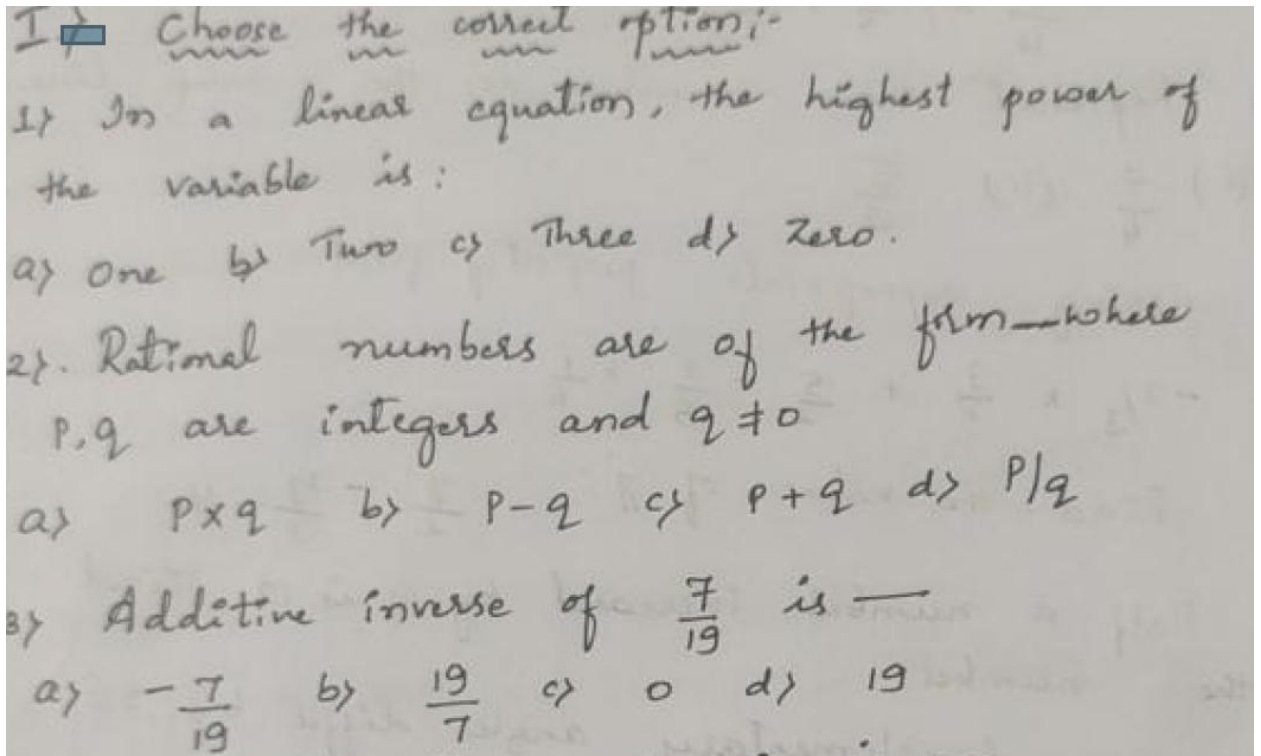 I) Choose the correct option:-
1) In a linear equation, the highest power of
the variable is :
a) One b) Two c) Three d) Zero.
2). Rational numbers are of the form — where
p, q are integers and q ≠ 0
a) p×q b) p-q c) p+q d) p/q
3) Additive inverse of 7/19 is —
a) -7/19 b) 19/7 c) 0 d) 19